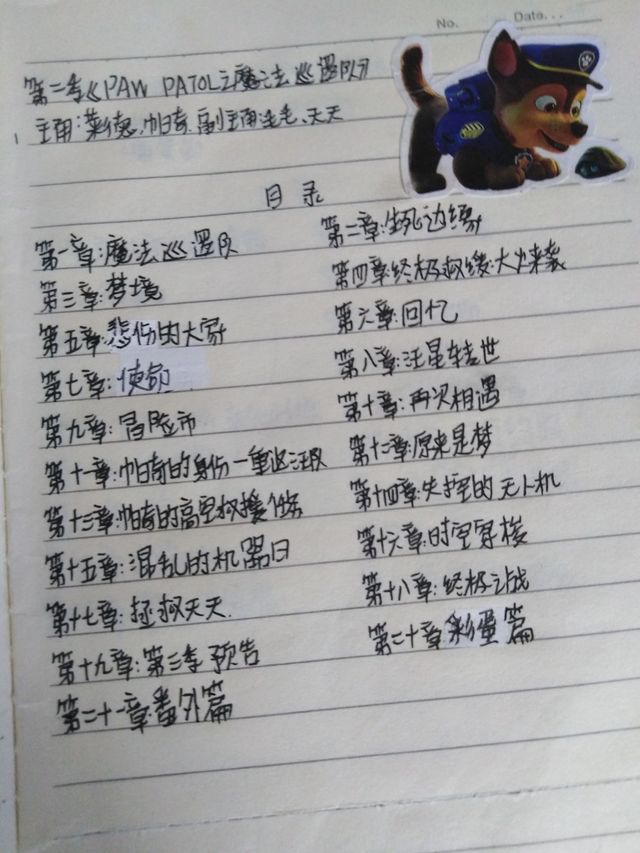 No.   Date...
第二季《PAW PATOL之魔法巡逻队》
主角:莱德、帕奇,副主角:毛毛、天天
目录
第一章:魔法巡逻队 第二章:生死边缘
第三章:梦境 第四章:终极救缓:大火来袭
第五章:悲伤的大家 第六章:回忆
第七章:使命 第八章:汪星转世
第九章:冒险市 第十章:再次相遇
第十一章:帕奇的身份一重返汪队 第十二章:原来是梦
第十三章:帕奇的高空救援 第十四章:失控的无人机
第十五章:混乱的机器日 第十六章:时空穿梭
第十七章:拯救天天. 第十八章:终极之战
第十九章:第三季预告 第二十章:彩蛋篇
第二十一章:番外篇